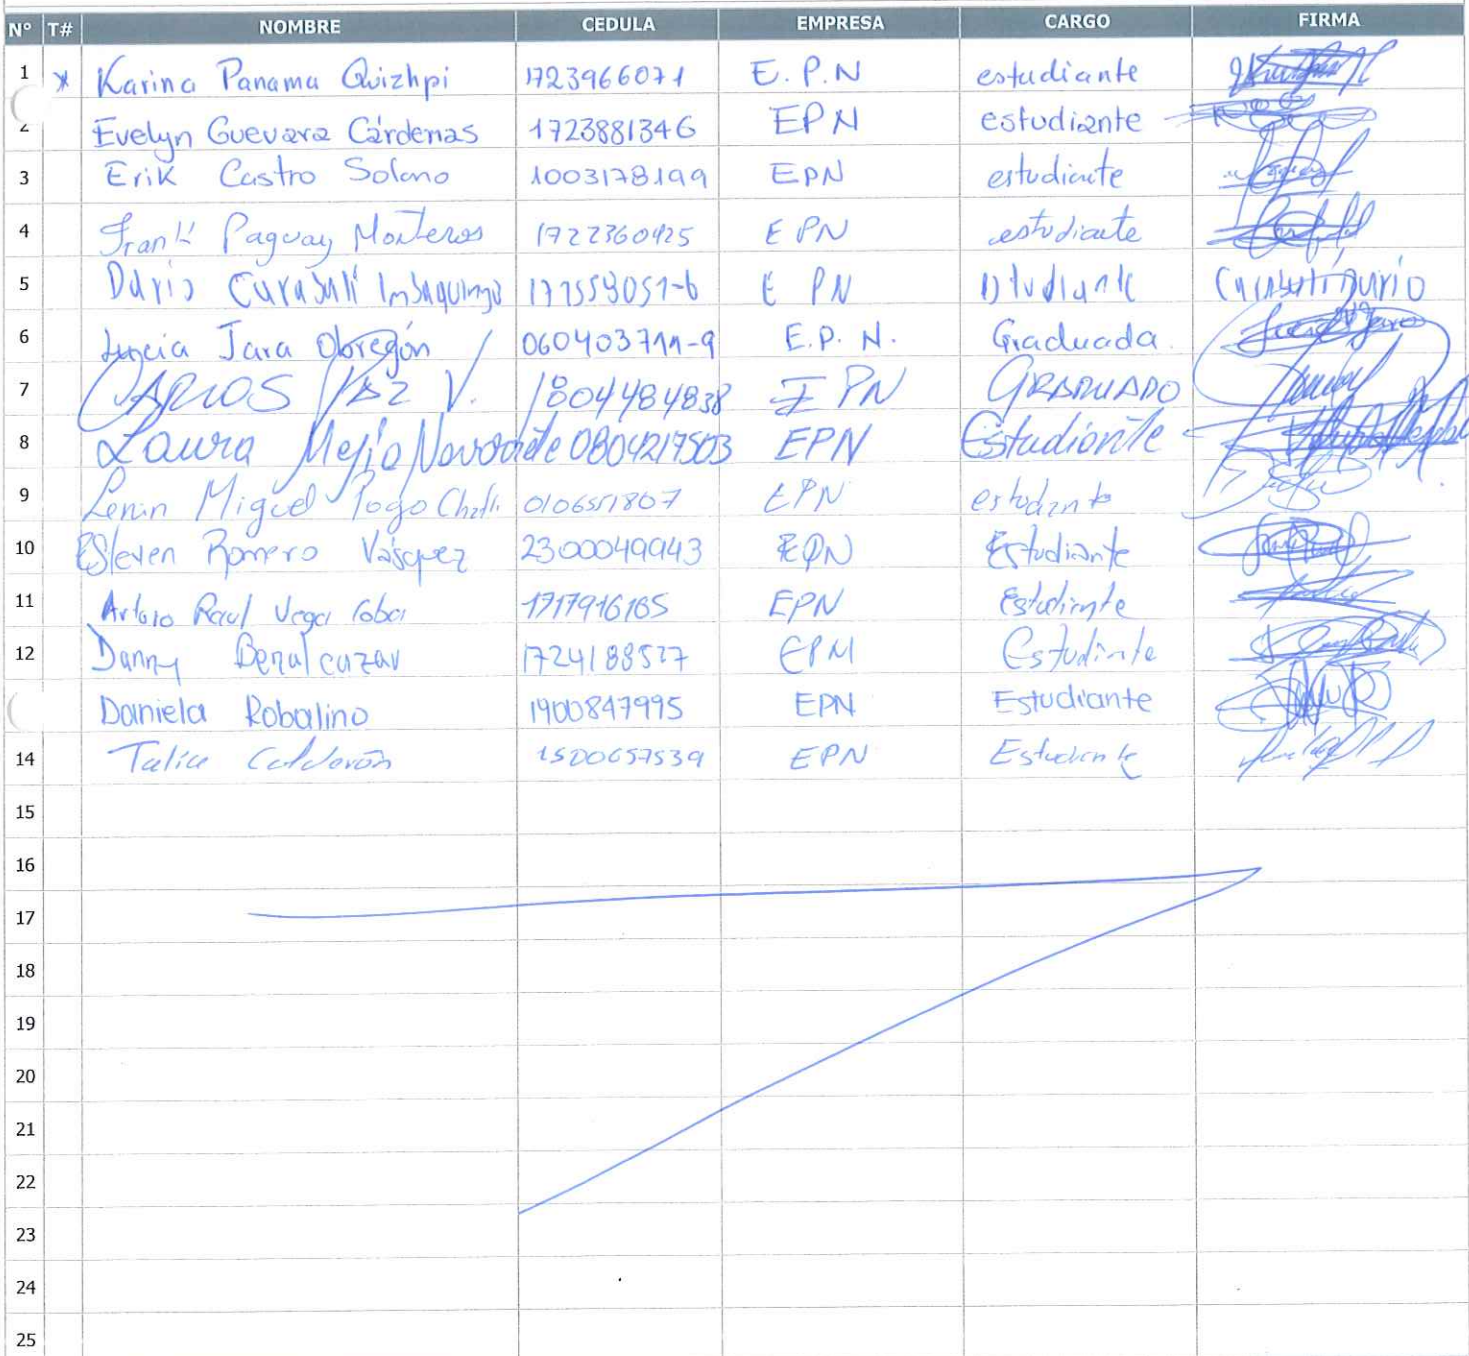 N° T# NOMBRE CEDULA EMPRESA CARGO FIRMA
1 Karina Panama Quizhpi 1723966071 E.P.N estudiante
2 Evelyn Guevara Cárdenas 1723881346 EPN estudiante
3 Erik Castro Solano 1003178199 EPN estudiante
4 Frank Paguay Monteros 1722360425 EPN estudiante
5 Dario Carabalí Imbaquingo EPN
6 Lucia Jara Obregón 060403711-9 E.P.N. Graduada
7 CARLOS V. 1804484838 EPN GRADUADO
8 Laura Mejia EPN Estudiante
9 Lenin Miguel Pogo EPN estudiante
10 Esteven Romero Vásquez 2300049943 EPN Estudiante
11 Arturo Raul Vega 1717916165 EPN Estudiante
12 Danny Benalcazar EPN Estudiante
Daniela Robalino 1900847995 EPN Estudiante
14 Talia Calderón 1500657539 EPN Estudiante
15
16
17
18
19
20
21
22
23
24
25